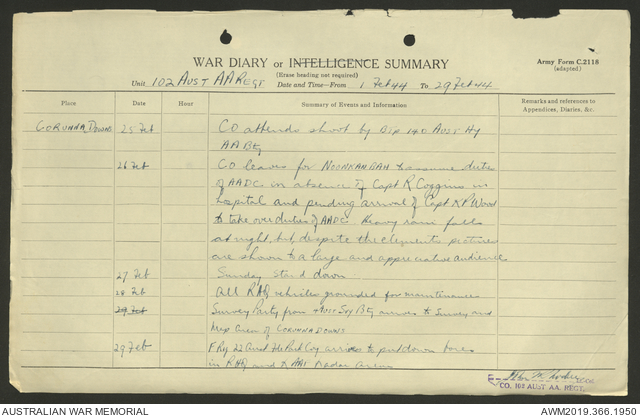 WAR DIARY or INTELLIGENCE SUMMARY
(Erase heading not required)
Army Form C.2118
(adapted)
Unit 102 AUST AA REGT Date and Time—From 1 Feb 44 To 29 Feb 44
Place Date Hour Summary of Events and Information Remarks and references to Appendices, Diaries, &c.
CORUNNA DOWNS 25 Feb CO attends shoot by 140 AUST Hy
AA Bty
26 Feb CO leaves for NOONKANBAH to assume duties
of AADC in absence of Capt R Coggins in
hospital and pending arrival of Capt R P Wood
to take over duties of AADC. Heavy rain falls
at night, but despite the elements pictures
are shown to a large and appreciative audience
27 Feb Sunday stand down
28 Feb All RHQ vehicles grounded for maintenance
29 Feb Survey Party from Aust Svy Bty arrives to survey and
map area of CORUNNA DOWNS
29 Feb 22 Aust Coy arrives to put down bores
in RHQ and AA radar areas
CO. 102 AUST AA. REGT.
AUSTRALIAN WAR MEMORIAL
AWM2019.366.1950